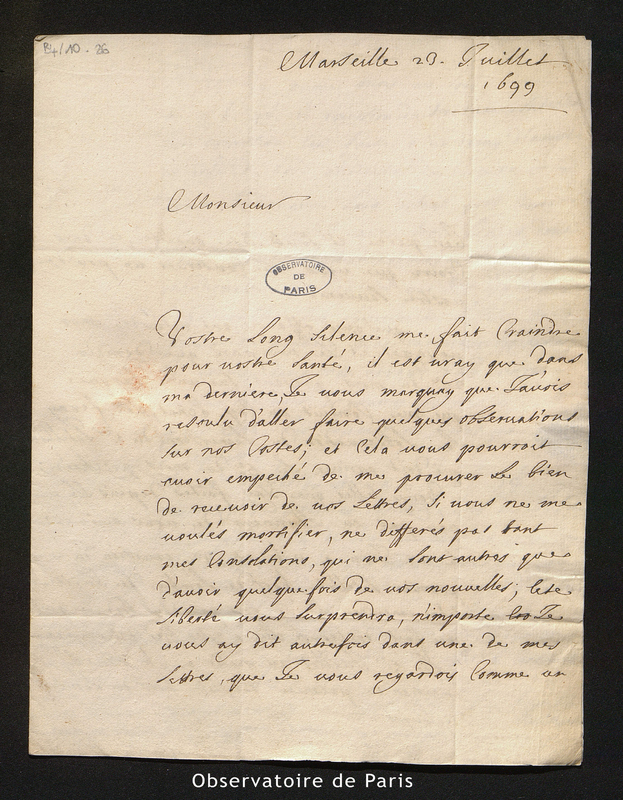 B4/10 - 26
Marseille 23. Juillet
1699
Monsieur
OBSERVATOIRE
DE
PARIS
Vostre Long silence me fait Craindre
pour vostre santé, il est vray que dans
ma derniere, Je vous marquay que J'avois
resoulu d'aller faire quelques observations
sur nos Costes; et Cela vous pourroit
avoir empeché de me procurer Le bien
de recevoir de vos Lettres, Si vous ne me
voulés mortifier, ne differés pas tant
mes Consolations, qui ne sont autres que
d'avoir quelque fois de vos nouvelles; Cete
Liberté vous surprendra, n'importe Je
vous ay dit autrefois dans une de mes
Lettres, que Je vous regardois Comme un
Observatoire de Paris